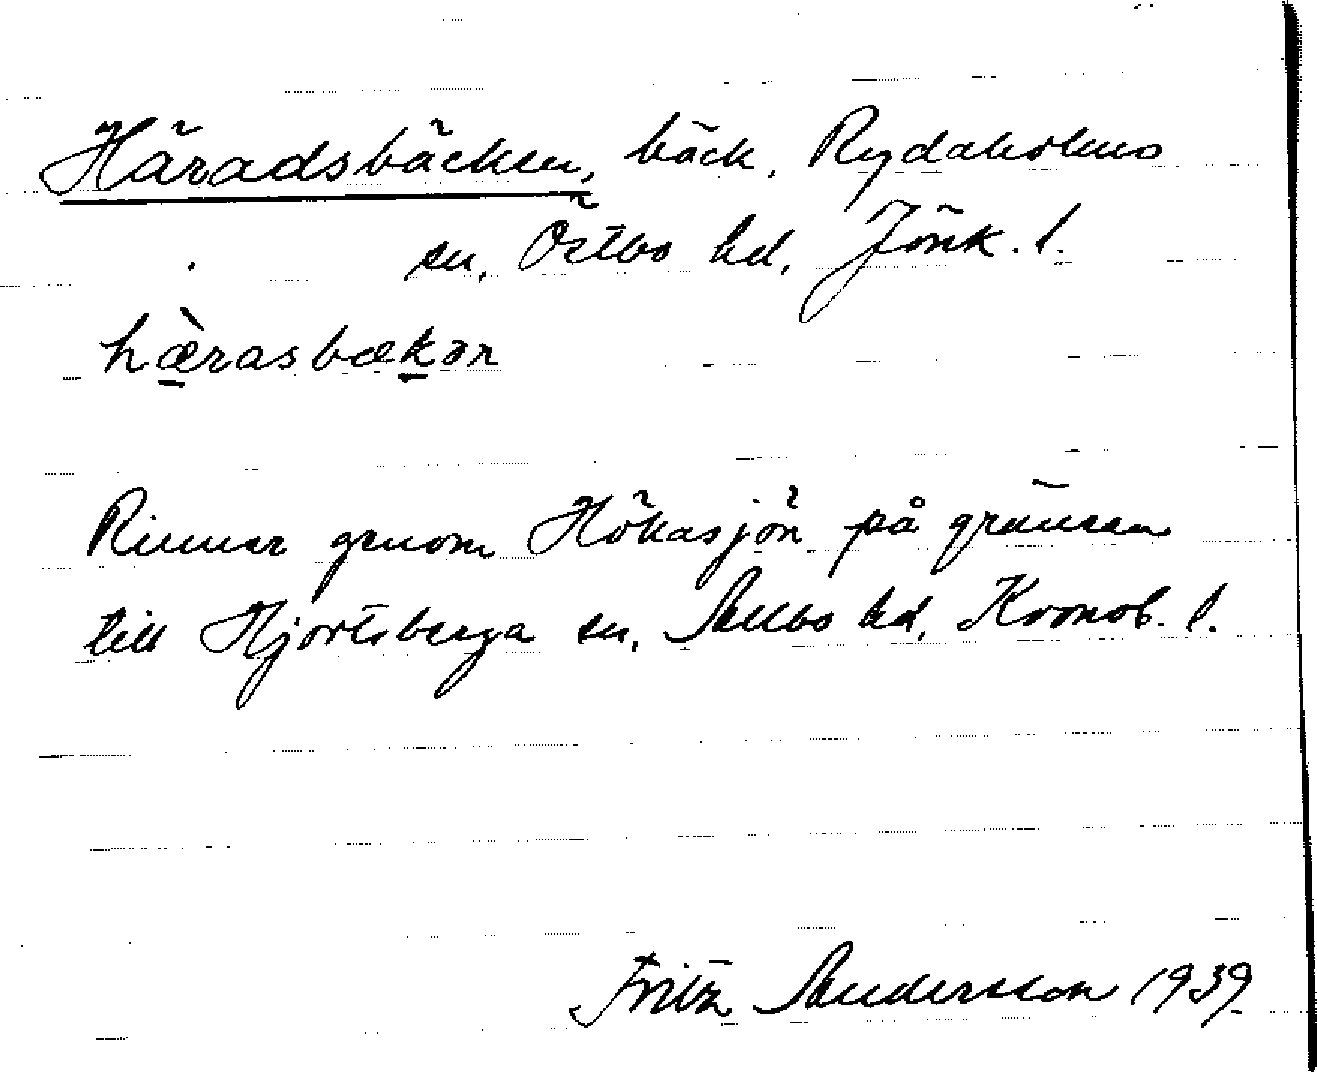 Häradsbäcken, bäck, Rydaholms
sn, Östbo hd, Jönk. l.
hæ̀rasbækən
Rinner genom Hökasjön på gränsen
till Hjortsberga sn, Allbo hd, Kronob. l.
Fritz Andersson 1939